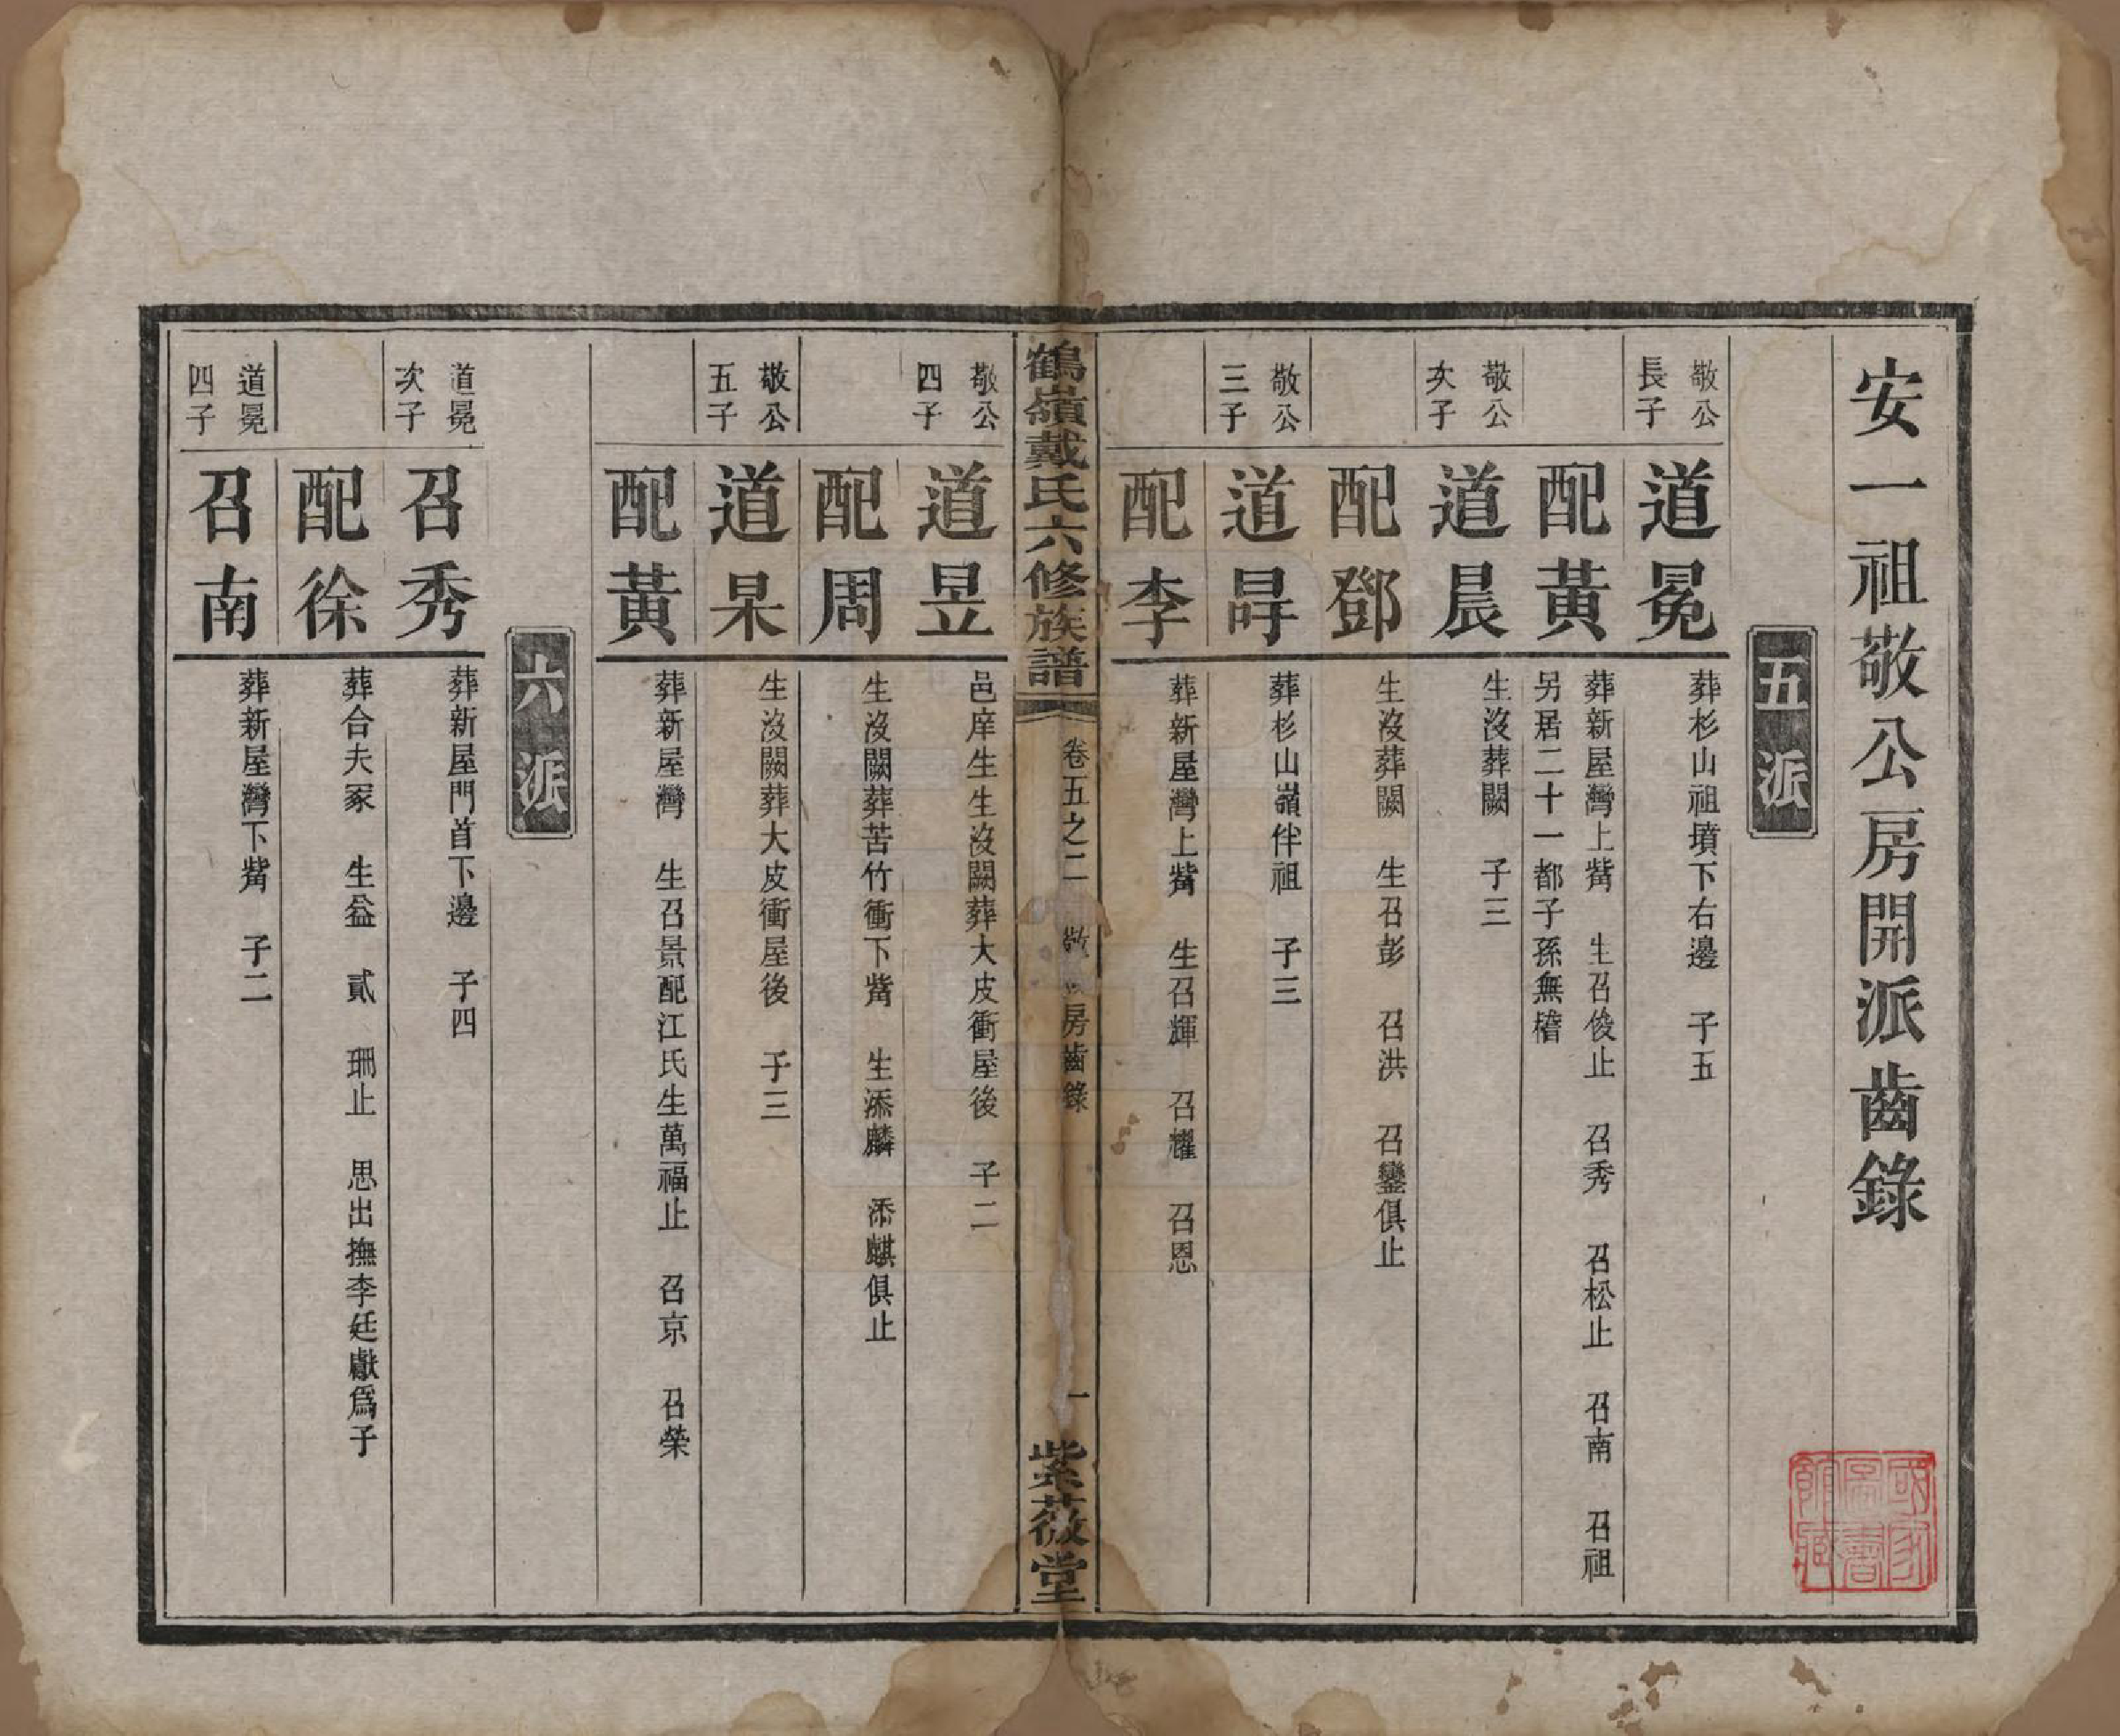 安一祖敬公房開派齒錄
五派
敬公
長子
道冕
葬杉山祖墳下右邊　子五
配黃
葬新屋灣上觜　生召俊止　召秀　召松止　召南　召祖
另居二十一都子孫無稽
敬公
次子
道晨
生沒葬闕　子三
配鄧
生沒葬闕　生召彭　召洪　召鑾俱止
敬公
三子
道㝵
葬杉山嶺伴祖　子三
配李
葬新屋灣上觜　生召輝　召耀　召恩
鶴嶺戴氏六修族譜
卷五之二
敬　房齒錄
一
紫薇堂
敬公
四子
道昱
邑庠生生沒闕葬大皮衝屋後　子二
配周
生沒闕葬苦竹衝下觜　生添麟　添麒俱止
敬公
五子
道杲
生沒闕葬大皮衝屋後　子三
配黃
葬新屋灣　生召景配江氏生萬福止　召京　召榮
六派
道冕
次子
召秀
葬新屋門首下邊　子四
配徐
葬合夫冢　生益　貳　珊止　思出撫李廷獻爲子
道冕
四子
召南
葬新屋灣下觜　子二
國家
圖書
館藏